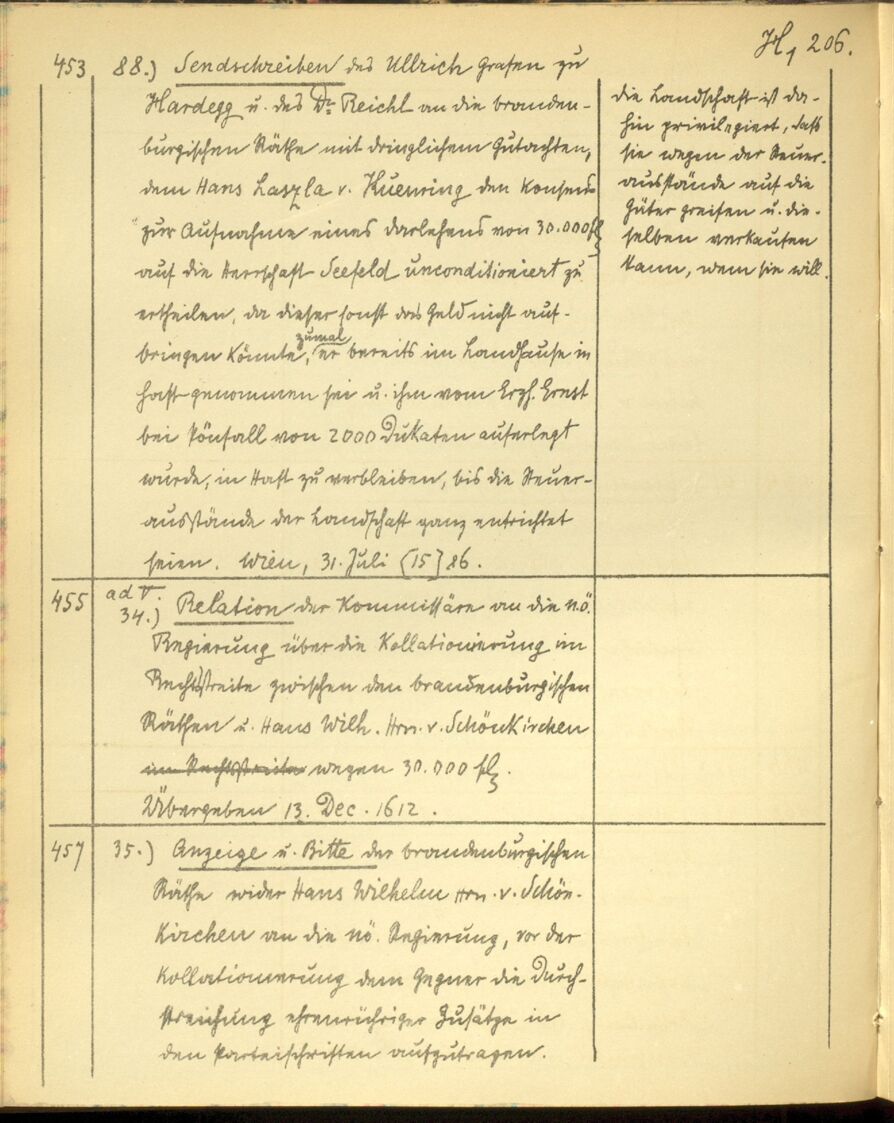 H, 206.
453 88.) Sendschreiben des Ullrich Grafen zu
Hardegg u. des Dr. Reichl an die branden-
burgischen Räthe mit dringlichem Gutachten,
dem Hans Laszla v. Kuenring den Konsens
zur Aufnahme eines Darlehens von 30.000 fl
auf die Herrschaft Seefeld unconditioniert zu
ertheilen, da dieser sonst das Geld nicht auf-
bringen könnte, zumal er bereits im Landhause in
Haft genommen sei u. ihm vom Erzh. Ernst
bei Pönfall von 2000 Dukaten auferlegt
wurde, in Haft zu verbleiben, bis die Steuer-
ausstände der Landschaft ganz entrichtet
seien. Wien, 31. Juli [15]86.
die Landschaft ist da-
hin privilegiert, daß
sie wegen der Steuer-
ausstände auf die
Güter greifen u. die-
selben verkaufen
kann, wem sie will.
455 ad V. 34.) Relation der Kommissäre an die nö.
Regierung über die Kollationierung im
Rechtsstreite zwischen den brandenburgischen
Räthen u. Hans Wilh. Hrn. v. Schönkirchen
im Rechtsstreite wegen 30.000 fl.
Übergeben 13. Dec. 1612.
457 35.) Anzeige u. Bitte der brandenburgischen
Räthe wider Hans Wilhelm Hrn. v. Schön-
kirchen an die nö. Regierung, vor der
Kollationierung dem Gegner die Durch-
streichung ehrenrühriger Zusätze in
den Parteischriften aufzutragen.